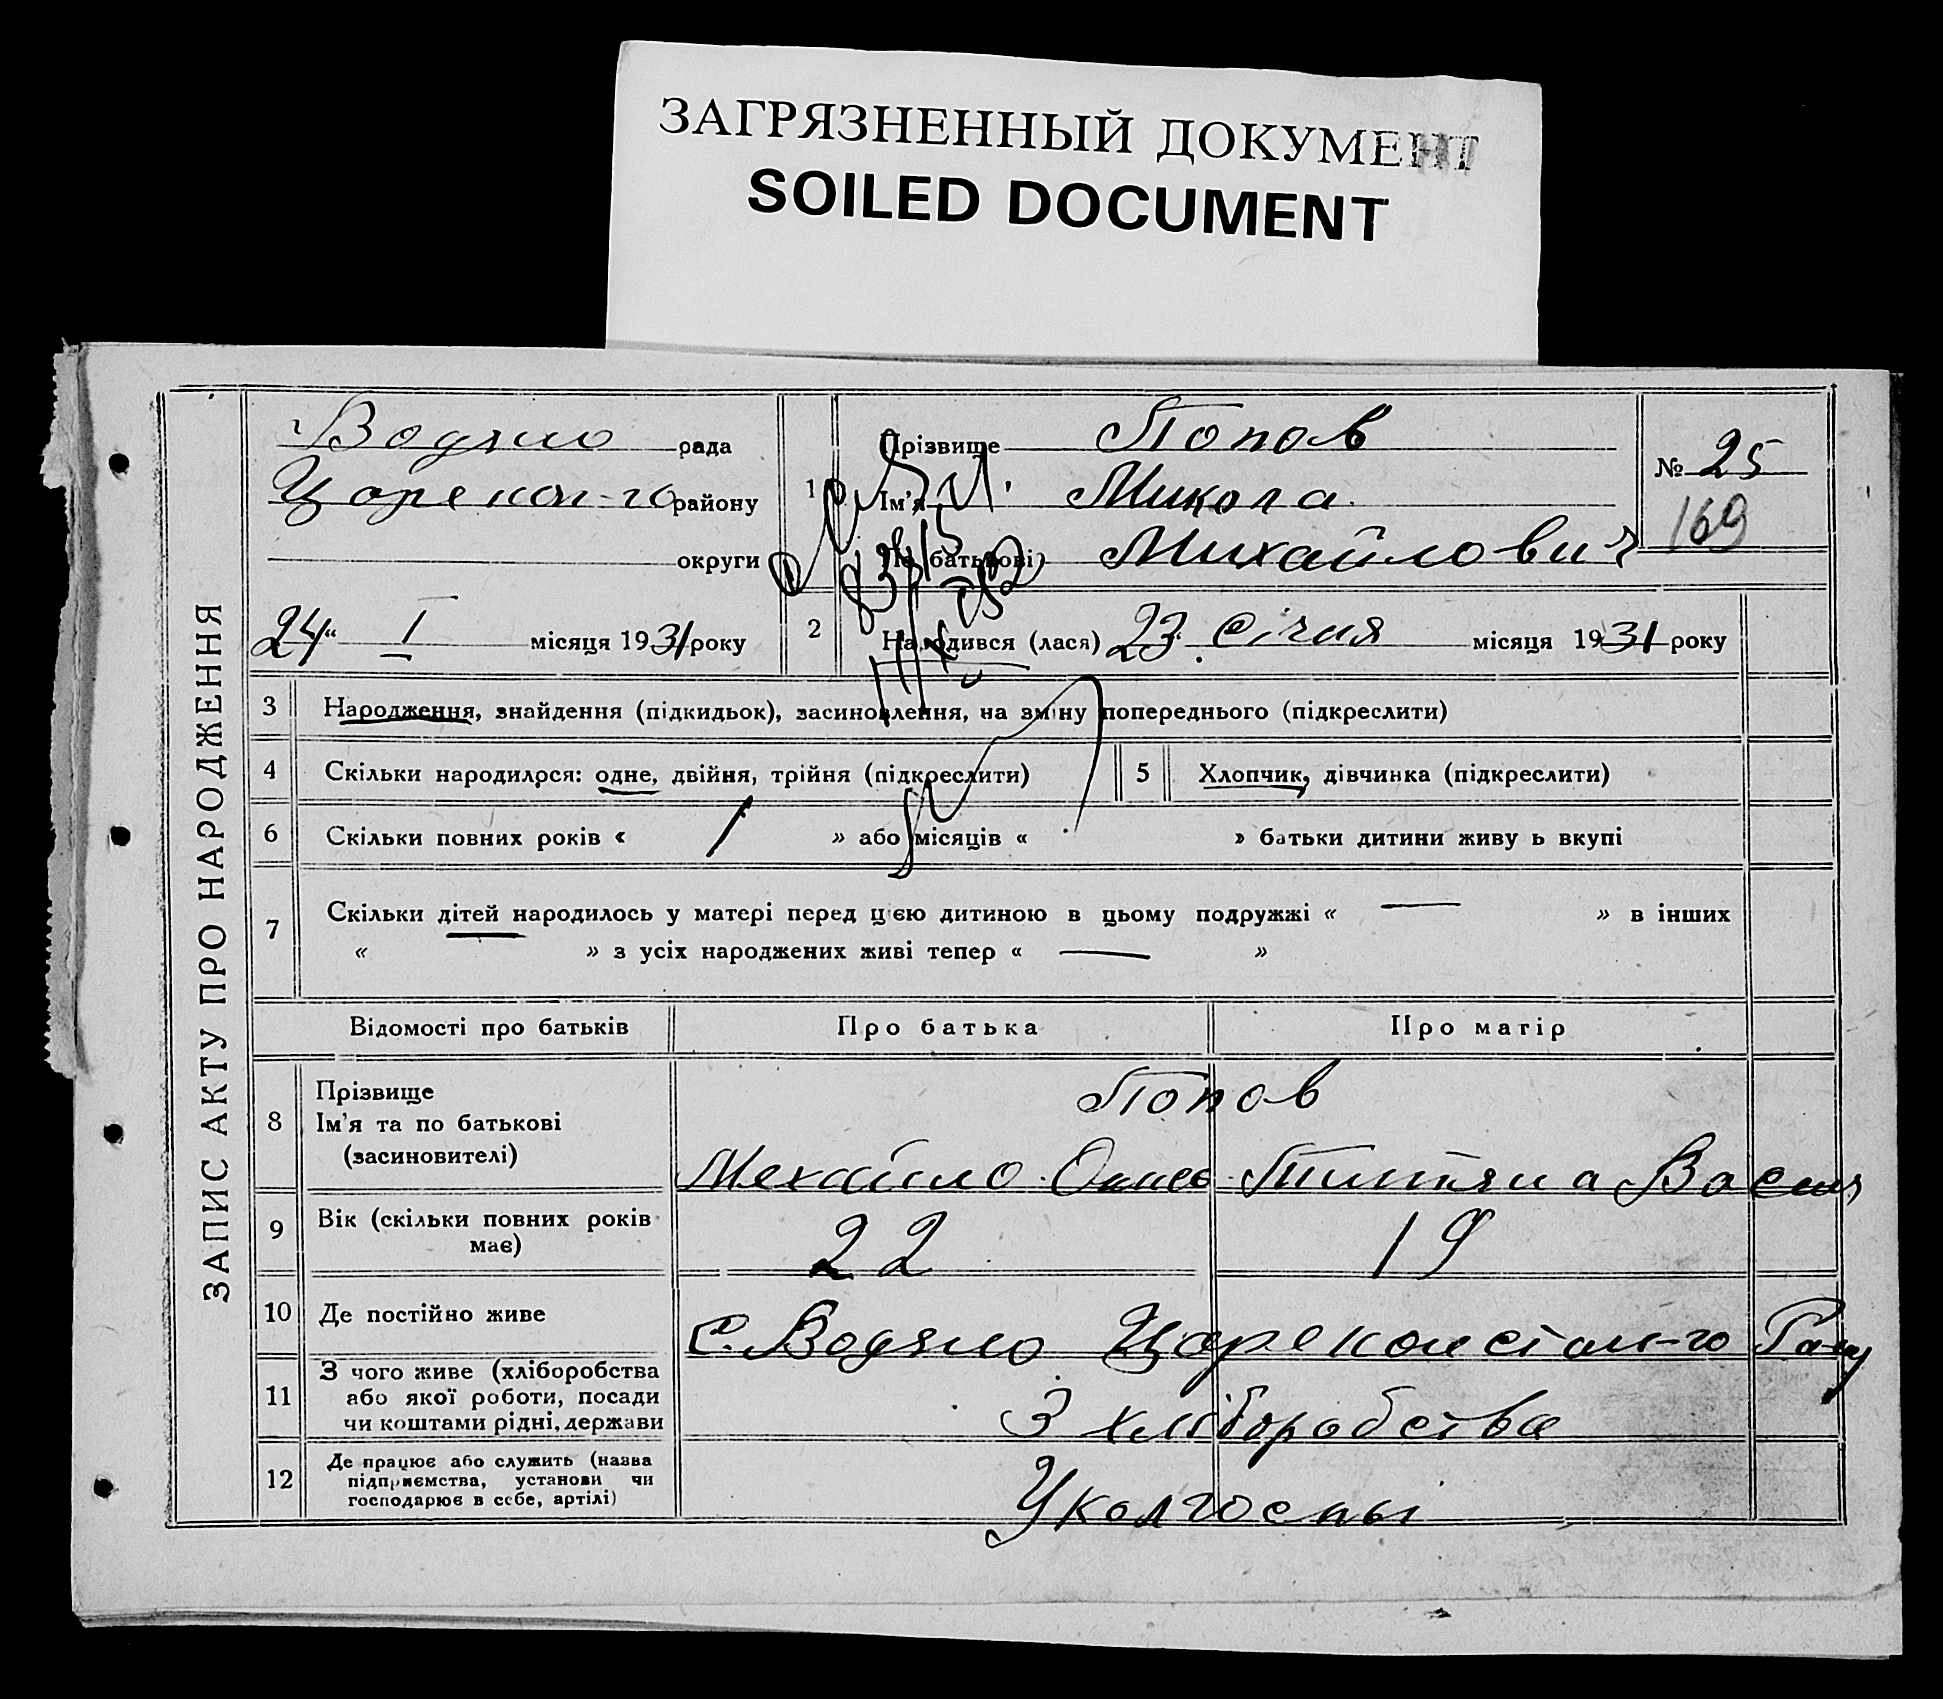 ЗАГРЯЗНЕННЫЙ ДОКУМЕНТ
SOILED DOCUMENT
ЗАПИС АКТУ ПРО НАРОДЖЕННЯ
Водяно рада
Царекон-го району
округи
24 " I місяця 1931 року
1 Прізвище Попов
Ім'я Микола
По батькові Михайлович
№ 25
169
2 Народився (лася) 23 Січня місяця 1931 року
3 Народження, знайдення (підкидьок), засиновлення, на зміну попереднього (підкреслити)
4 Скільки народилося: одне, двійня, трійня (підкреслити) 5 Хлопчик, дівчинка (підкреслити)
6 Скільки повних років « 1 » або місяців « » батьки дитини живу ь вкупі
7 Скільки дітей народилось у матері перед цією дитиною в цьому подружжі « — » в інших
« » з усіх народжених живі тепер « — »
Відомості про батьків Про батька Про матір
8 Прізвище Попов
Ім'я та по батькові
(засиновителі) Михайло Титтяна Васил
9 Вік (скільки повних років 22 19
має)
10 Де постійно живе С. Водяно Цареконстан-го
11 З чого живе (хліборобства
або якої роботи, посади З хліборобства
чи коштами рідні, держави
12 Де працює або служить (назва
підприємства, установи чи У колгоспі
господарює в себе, артілі)